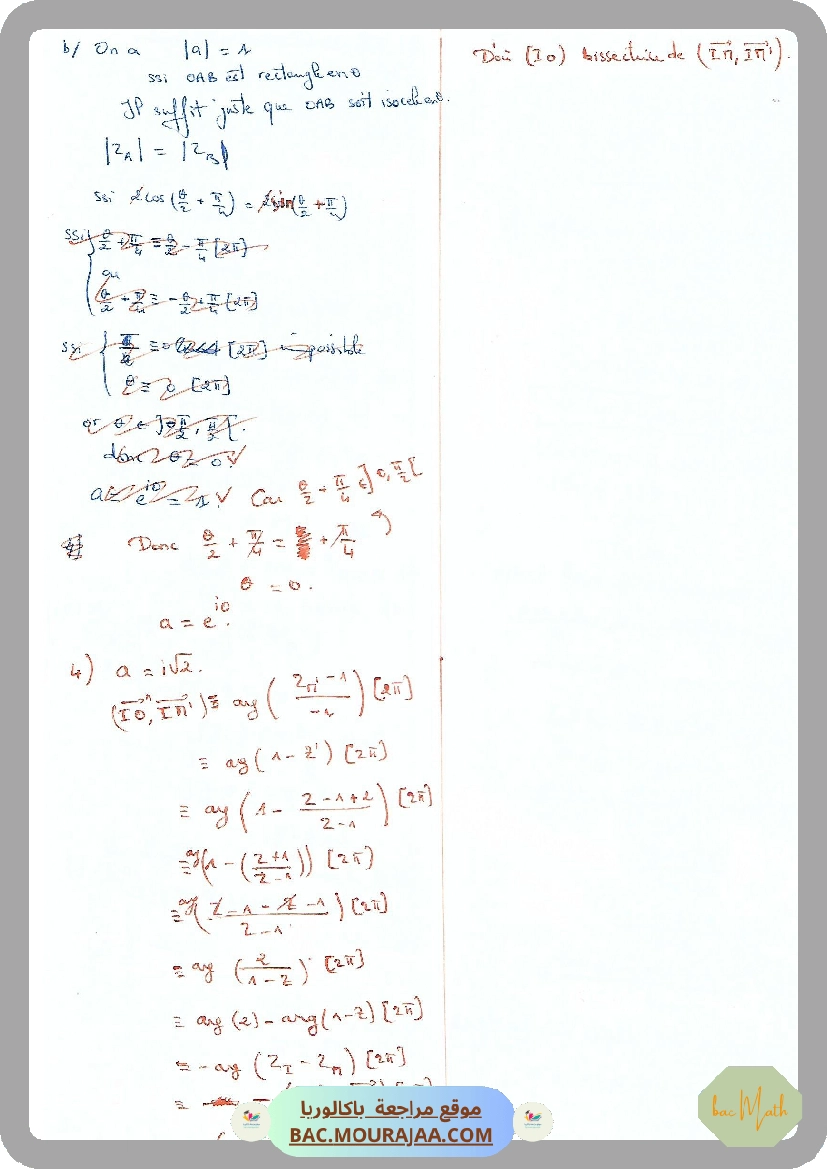 b/ On a |a| = 1
ssi OAB est rectangle en O
Il suffit juste que OAB soit isocele en O.
|Z_A| = |Z_B|
ssi 2cos(θ/2 + π/4) = 2sin(θ/2 + π/4)
ssi { θ/2 + π/4 ≡ θ/2 - π/4 [2π]
ou
θ/2 + π/4 ≡ -θ/2 + π/4 [2π]
ssi { π/2 ≡ 0 [2π] impossible
θ ≡ 0 [2π]
or θ ∈ ]-π/2, π/2[.
donc θ = 0
a = e^{i0} = 1. Car θ/2 + π/4 ∈ ]0, π/2[
Donc θ/2 + π/4 = π/4
θ = 0.
a = e^{i0}.
4) a = i√2.
(IO, IM') ≡ arg((Z_M' - 1)/-1) [2π]
≡ arg(1 - Z') [2π]
≡ arg(1 - (Z - 1 + 2)/(Z - 1)) [2π]
≡ arg(1 - ((Z + 1)/(Z - 1))) [2π]
≡ arg((Z - 1 - Z - 1)/(Z - 1)) [2π]
≡ arg(2/(1 - Z)) [2π]
≡ arg(2) - arg(1 - Z) [2π]
≡ - arg(Z_I - Z_M) [2π]
≡
Doù (IO) bissectrice de (IM, IM').
موقع مراجعة باكالوريا
BAC.MOURAJAA.COM
bac Math